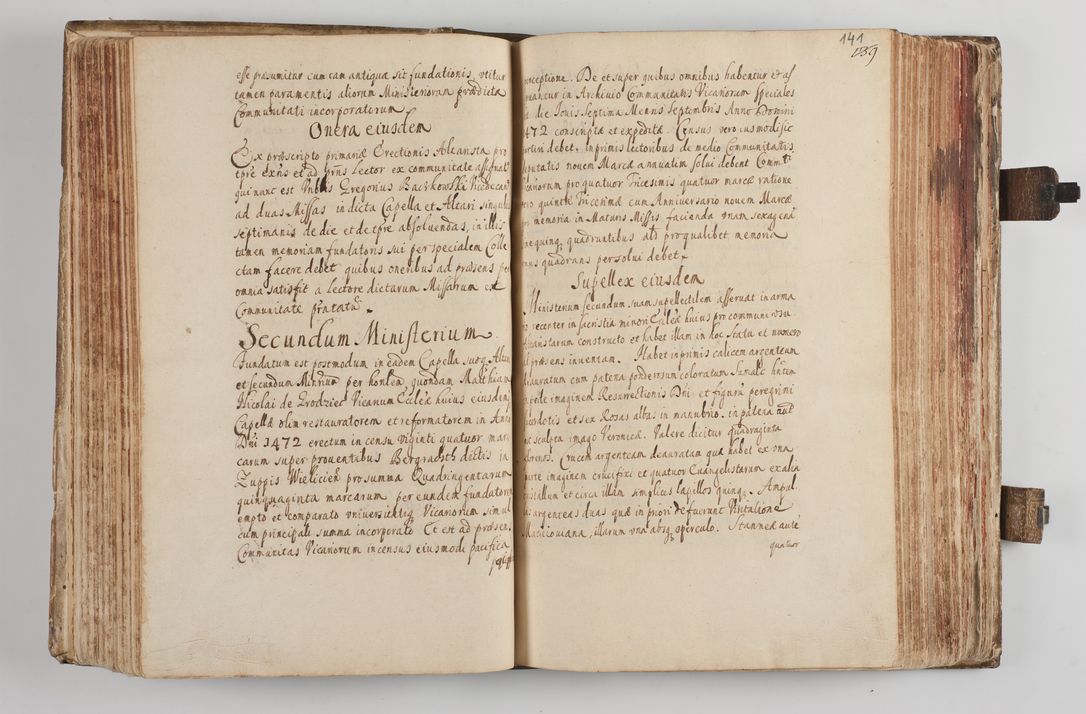 esse præsumitur cum tam antiqua sit fundationis, vtitur
tamen paramentis aliorum Ministeriorum prædictæ
Communitati incorporatorum
Onera eiusdem
Ex præscripto primariæ Erectionis Altarista pro
tpre exns et ad prns Lector ex communitate assignat9
qui nunc est Gregorius Baczkowski Vicedecan9
ad duas Missas in dicta Capella et Altari singulis
septimanis de die et de tpre absoluendas, in illis
tamen memoriam fundatoris sui per specialem Colle
ctam facere debet quibus oneribus ad præsens per
omnia satisfit a Lectore dictarum Missarum ex
Comunitate
Secundum Ministerium
Fundatum est postmodum in eadem Capella suoq Altari
et secundum per honlem quondam Matthiam
Nicolai de Grodziec Vicarium Ecclæ huius eiusdemq
Capellæ olim restauratorem et reformatorem in Anno
Dni 1472 erectum in censu viginti quatuor mar
carum super prouentibus dictis in
Zuppis Wielicien pro summa Quadringentarum
quinquaginta marcarum per eundem fundatorem
empto et comparato vniuersitatiq Vicariorum simul
cum principali summa incorporato Et est ad præsens
Communitas Vicariorum in census eiusmodi pacifica
141
139
perceptione. De et super quibus omnibus habentur et as
seruantur in Archiuio Communitatis Vicariorum speciales
die Iouis Septima Mensis Septembris Anno Domini
1472 conscriptæ et expeditæ. Census vero eiusmodi sic
partiri debet, inprimis lectoribus de medio Communitatis
deputatis nouem Marcæ annuatim solui debent
Vicariorum pro quatuor Tricesimis quatuor marcæ ratione
vero quintæ Tricesimæ cum Anniuersario nouem Marcæ
pro memoria in Maturis Missis facienda vnam sexagena
quinq quadruntibus als pro qualibet memoria
vnus quadrans persolui debet
Supellex eiusdem
Ministerium secundum suam supellectilem asseruat in arma
rio recenter in sacristia minori Ecclæ huius pro communi vsu
Altaristarum constructo et habet illam in hoc statu et numero
ad præsens inuentam. Habet inprimis calicem argenteum
deauratum cum patena ponderosum coloratum Szmalc hntem
in pede imaginem Resurrectionis Dni et figuræ peregrini
sacerdotis et sex Rosas albas in manubrio, in patena
sculpta imago Veronicæ. Valere dicitur quadraginta
florenos. Crucem argenteam deauratam quæ habet ex vna
parte imaginem crucifixi et quatuor Euangelistarum ex alia
cristallum et circa illam simplices lapillos quinq. Ampul
las argenteas duas quæ in priori defuerunt Visitatione
Maciiouiana, illarum vna absq operculo. Stanneæ aute
quatuor